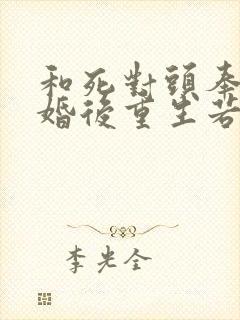 和死對頭奉
婚後重生若
李光全